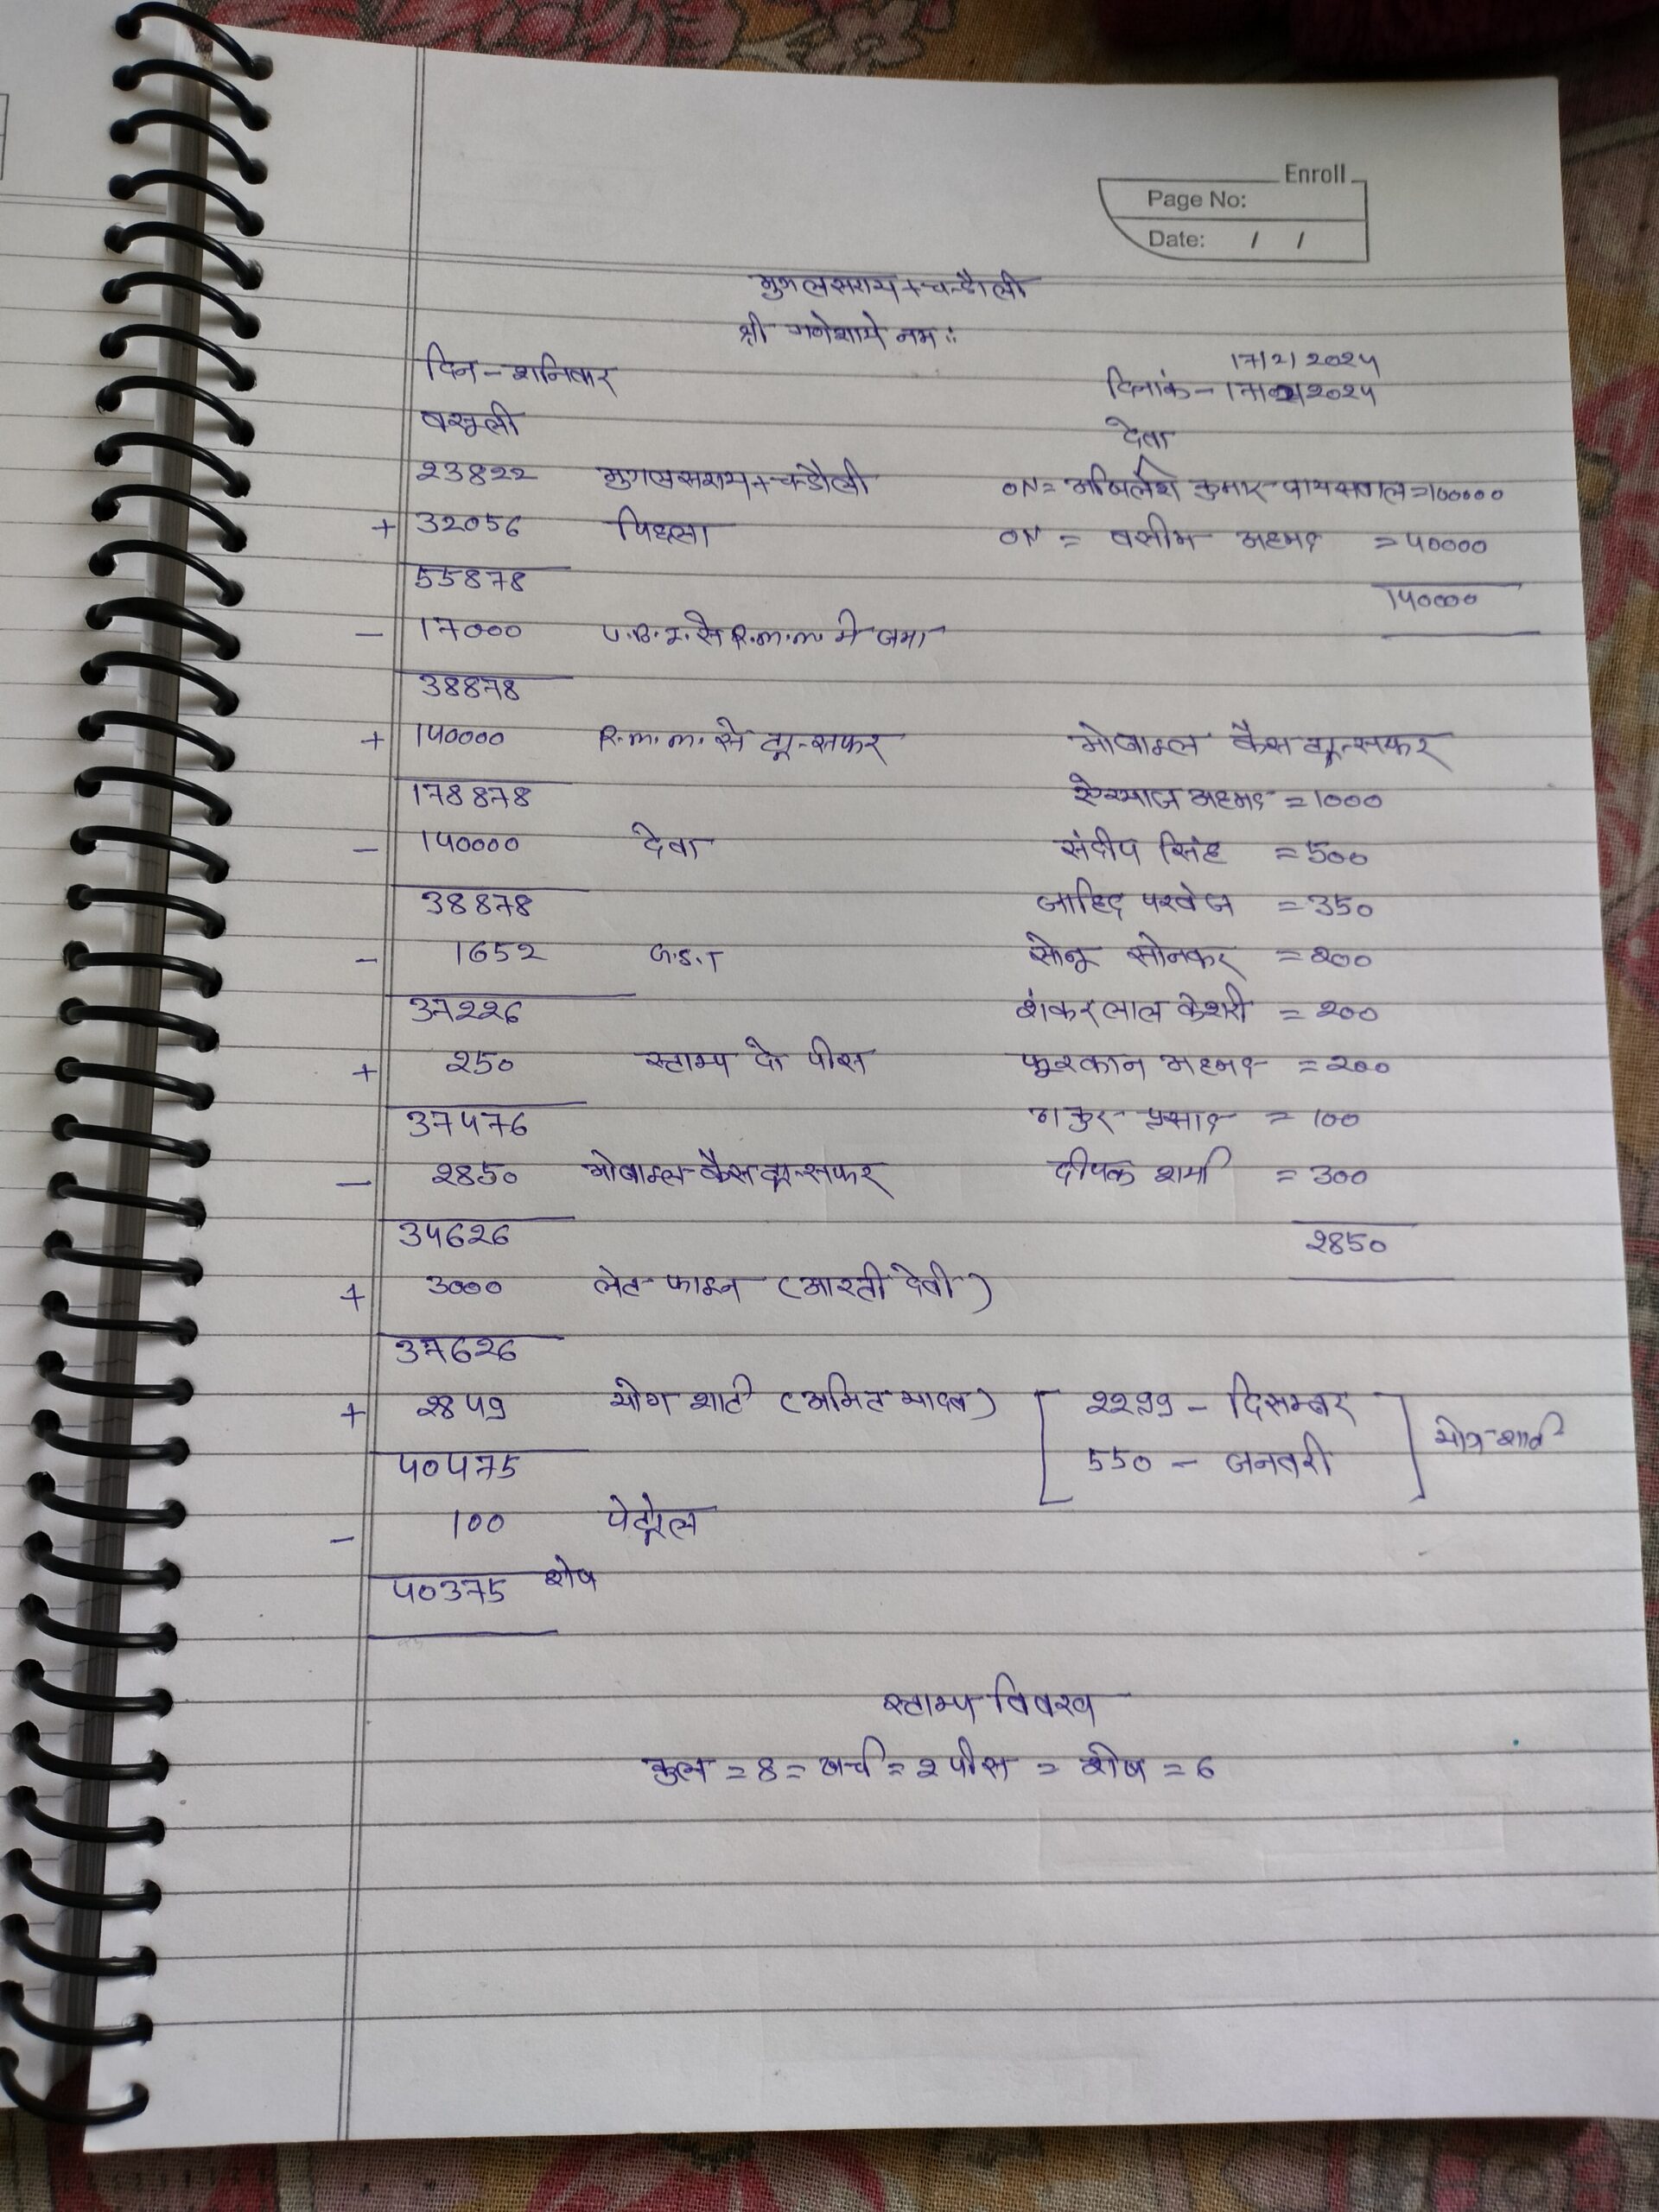 Enroll
Page No:
Date: / /
मुगलसराय+चन्दौली
श्री गणेशाये नमः
17/2/2024
दिन-शनिवार दिनांक-17/02/2024
वसूली देवा
23822 मुगलसराय+चन्दौली ON= अखिलेश कुमार जायसवाल=100000
+ 32056 पिछला ON = वसीम अहमद =40000
55878 140000
- 17000 U.B.I. से R.m.m. मे जमा
38878
+ 140000 R.m.m. से ट्रान्सफर मोबाइल कैस ट्रान्सफर
178878 अहमद =1000
- 140000 देवा संदीप सिंह =500
38878 जाहिद परवेज =350
- 1652 G.S.T सोनू सोनकर =200
37226 शंकर लाल केशरी =200
+ 250 स्टाम्प दो पीस फूरकान अहमद =200
37476 प्रसाद =100
- 2850 मोबाइल कैस ट्रान्सफर दीपक शर्मा =300
34626 2850
+ 3000 लेट फाइन (आरती देवी)
37626
+ 2849 योग शार्ट (अमित यादव) [2299 - दिसम्बर
40475 550 - जनवरी] योग शार्ट
- 100 पेट्रोल
40375 शेष
स्टाम्प विवरण
कुल =8= खर्च =2 पीस = शेष =6